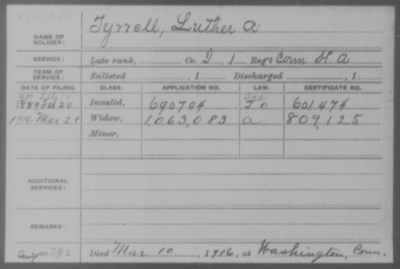 NAME OF SOLDIER: Tyrrell, Luther A
SERVICE: Late rank, Co. I, 1 Reg't Conn H A
TERM OF SERVICE: Enlisted , 1 Discharged , 1
DATE OF FILING. CLASS. APPLICATION NO. LAW. CERTIFICATE NO.
1889 Feb 20 Invalid, 690704 601474
1916 Mar 21 Widow, 1,063,083 a 809,125
Minor,
ADDITIONAL SERVICES:
REMARKS:
Died Mar 10, 1916, at Washington, Conn.